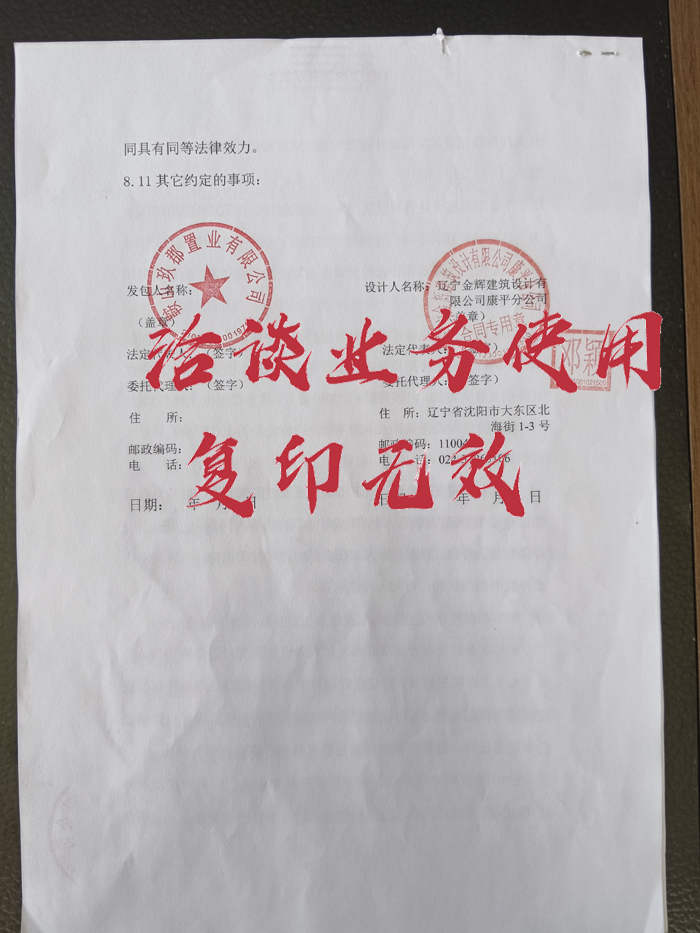 同具有同等法律效力。
8.11其它约定的事项：
鞍山玖郡置业有限公司
设计有限公司康平
合同专用章
邓颖
发包人名称：
设计人名称：辽宁金辉建筑设计有
限公司康平分公司
（盖章
盖章）
法定代
签字）
法定代表
委托代理人：
（签字）
委托代理人：
签字）
住 所：
住 所：辽宁省沈阳市大东区北
海街1-3号
邮政编码：
邮政编码：11004
电 话：
电 话：024
日期： 年 月 日
年 月 日
洽谈业务使用
复印无效